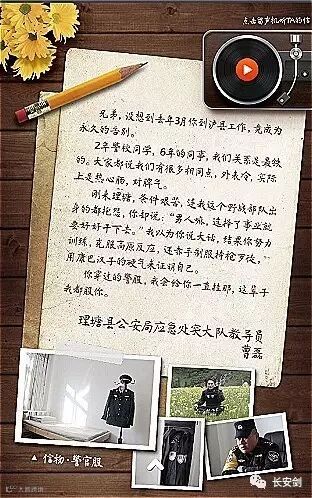 点击留声机听TA的信
兄弟,没想到去年3月你到泸县工作,竟成为
永久的告别。
2年警校同学,6年的同事,我们关系是最铁
的。大家都说我们有很多相同点,外表冷,实际
上是热心肠,好脾气。
刚来理塘,条件艰苦,连我这个野战部队出
身的都抱怨,你却说:“男人嘛,选择了事业就
要好好干下去。”我以为你说大话,结果你努力
训练,克服高原反应,还赤手制服持枪歹徒,
用康巴汉子的硬气来证明自己。
你穿过的警服,我会给你一直挂那,这辈子
我都服你。
理塘县公安局应急处突大队教导员
曹磊
信物·警官服
长安剑